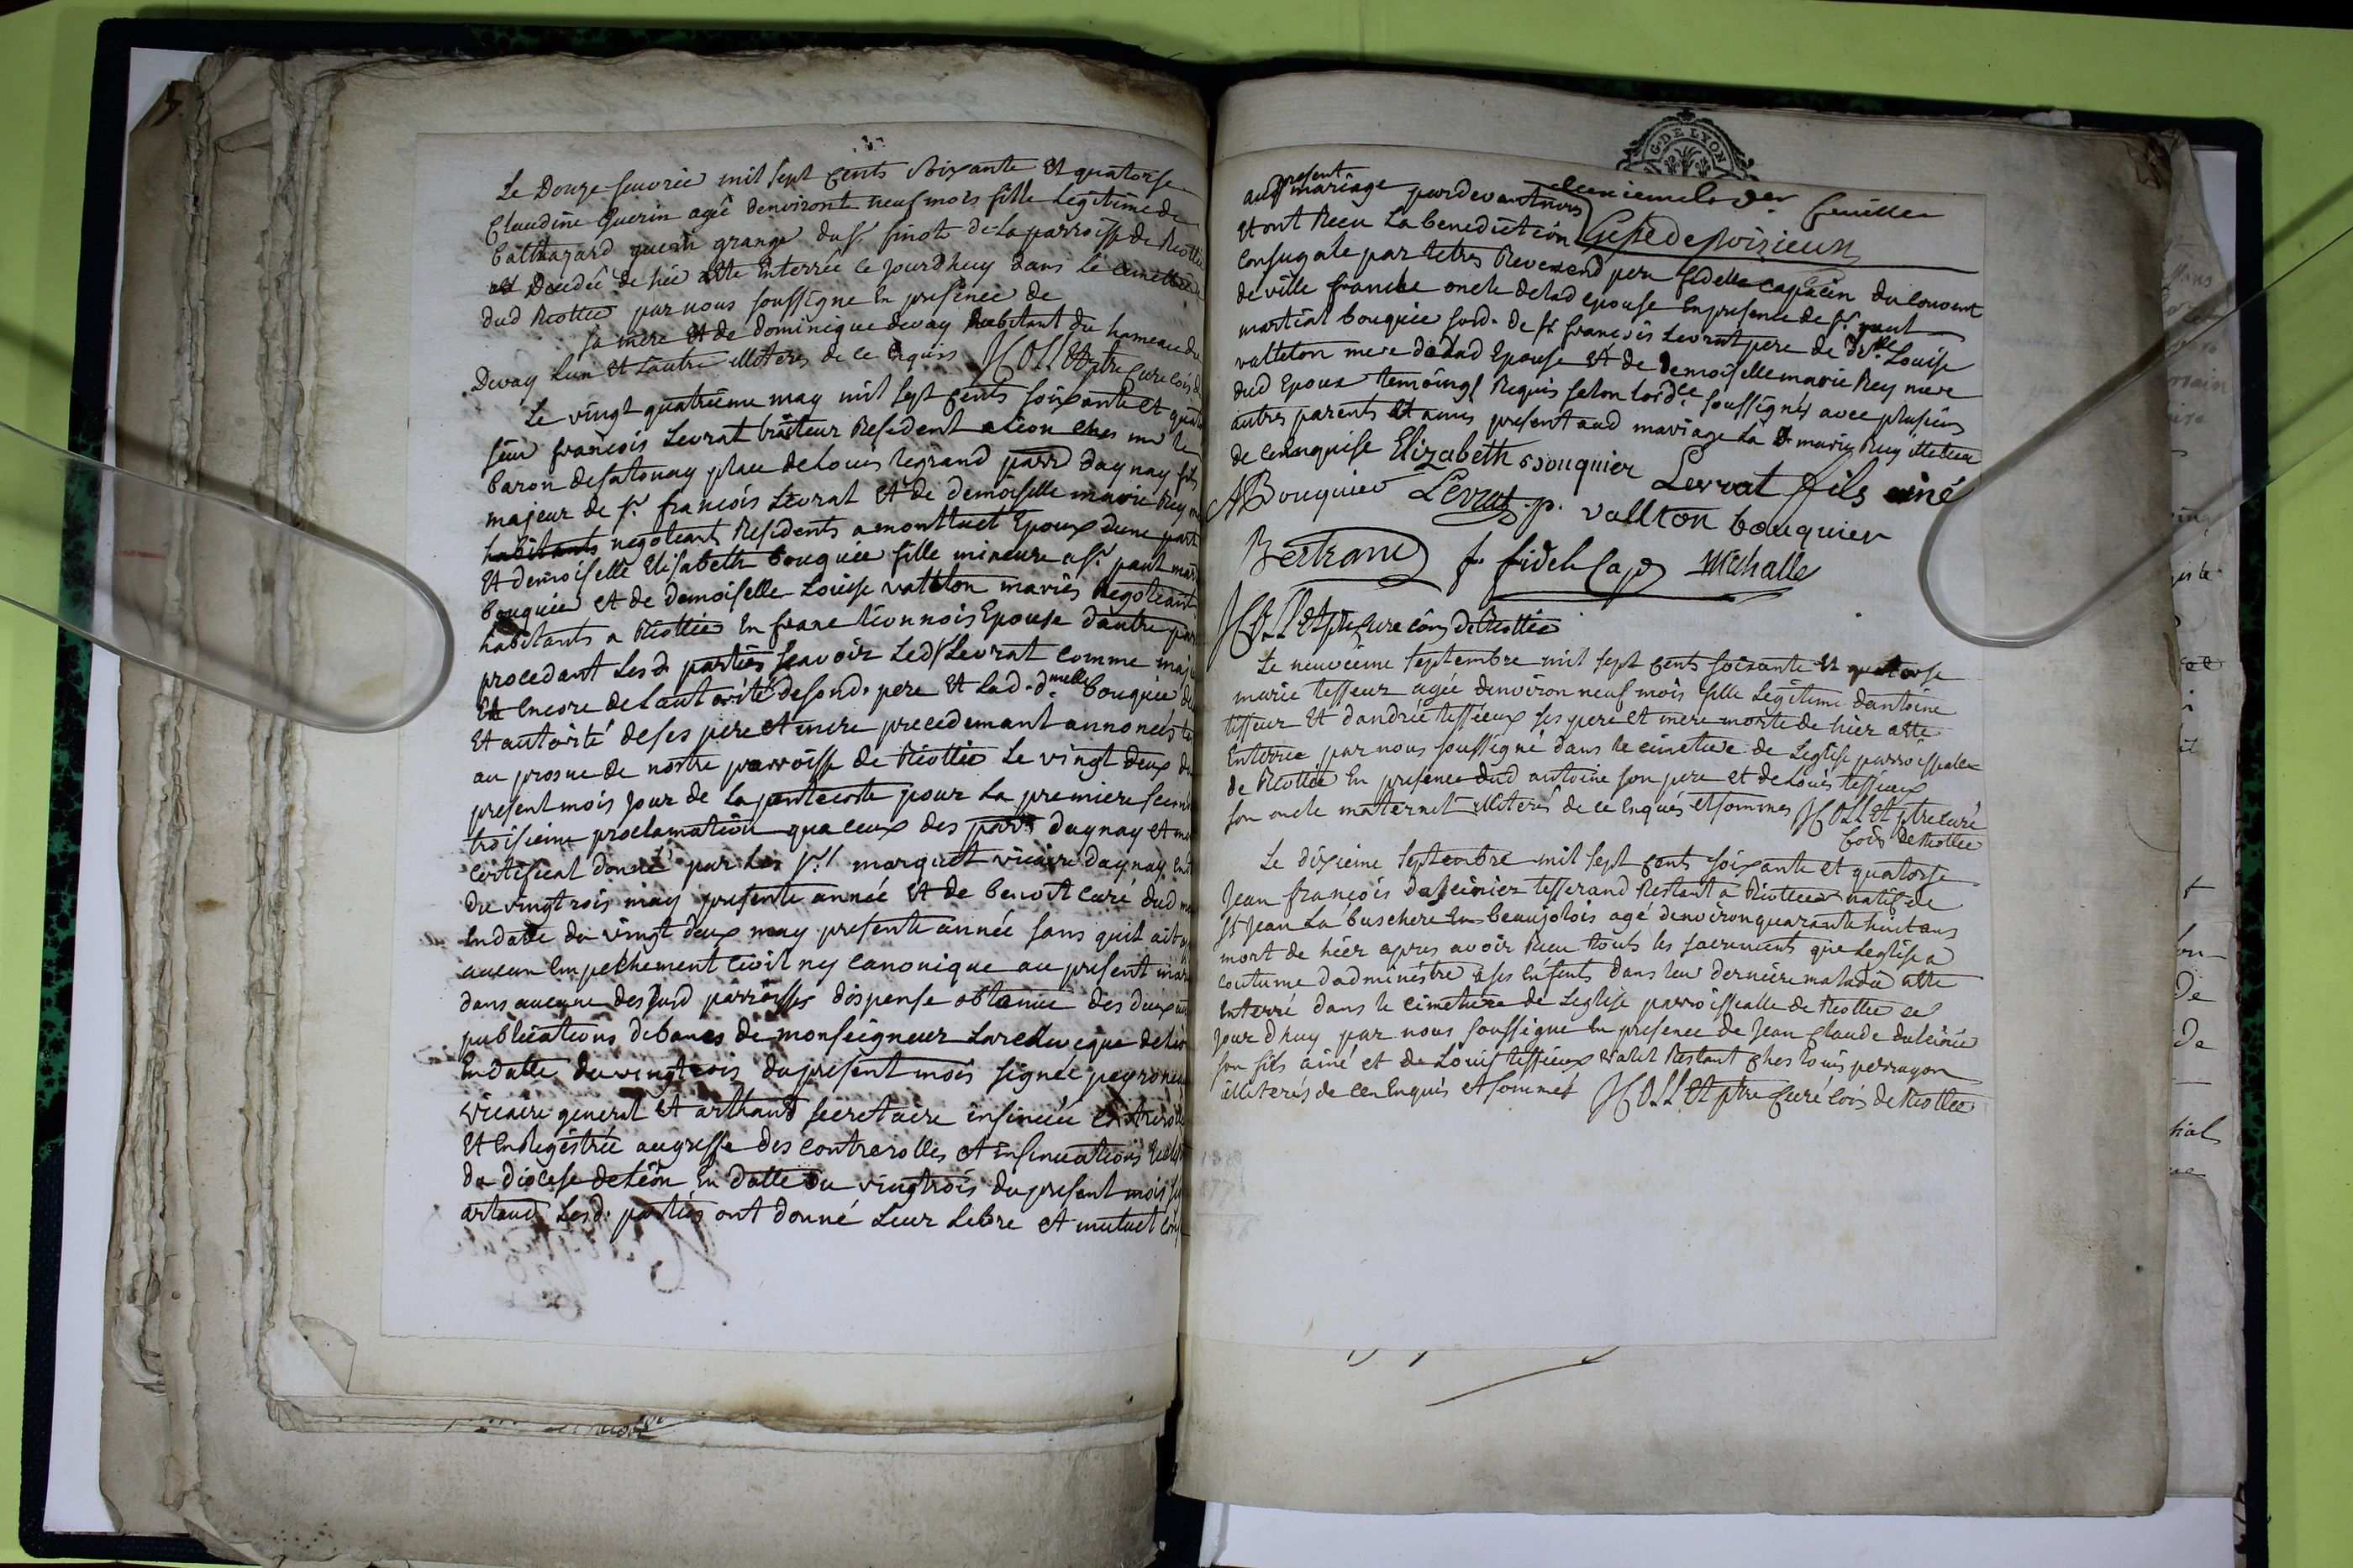 Le Douze fevrier mil sept cents soixante et quatorse
Claudine Guerin agée denviront neuf mois fille Legitime de
balthazard guerin granger du sr. finot de la parroisse de Riottie
est Decedée de hier atte Enterrée ce jourdhuy dans le cimettiere
dud Riottier par nous soussigne En presence de
sa mere et de dominique devay habitant du hameau du
Devay Lun et Lautre illiteres de ce Enquis ptre Curé
Le vingt quatrieme may mil sept cents soixante et
sieur francois Levrat traiteur Resident a Lion ches mr le
baron de fatonay place de Louis legrand parr daynay fils
majeur de sr. francois Levrat et de demoiselle marie Rey
habitants negotiants Residents a montluel Epoux dune part
Et demoiselle Elisabeth bouquier fille mineure a sr. paul
bouquier et de demoiselle Louise valleton mariés negotiants
habitants a Riottier En franc lionnois Epouse dautre part
procedant Lesd. parties scavoir Led Levrat comme
Et Encore de Lautorité de sond. pere et Lad. dmelle bouquier de
Et autorité de ses pere et mere precedemant annoncés
au prosne de nostre parroisse de Riottier Le vingt deux du
present mois jour de La pentecoste pour La premiere
troisieme proclamation qua ceux des parrs daynay et
certificat donné par Les srs marquet vicaire daynay
du vingtrois may presente année et de benoit curé dud
En datte du vingt deux may presente année sans quil ait
aucun Empechement civil ny canonique au present
dans aucune des susd parroisses dispense obtenue des deux
publications de bancs de monseigneur Larcheveque de Lion
En datte du vingtrois du present mois signée
vicaire general et arthaud secretaire insinuée
Et Enregistrée au greffe des controrolles et insinuations
du diocese de Lion En datte du vingtrois du present mois
artaud Lesd. parties ont donné Leur Libre et mutuel
feuillet
present
aud mariage pardevant nous
Et ont Receu La benediction
Conjugale par tetres Reverend pere fidelle capucin du couvent
de ville franche oncle de lad epouse En presence de sr. paul
martial bouquier sond. de sr francois Levrat pere de Louise
valleton mere de lad Epouse et de demoiselle marie Rey mere
dud Epoux temoings Requis selon Lordce soussignés avec plusieurs
autres parents et amis present aud mariage La de marie Rey illiteree
de ce Enquise Elizabeth Bouquier Levrat fils ainé
ABouquier Levrat. p. vallton bouquier
Bertrand f. fidele Cap
ptre Curé de Riottier
Le neuvieme septembre mil sept cents soixante et quatorse
marie tesseur agée denviron neuf mois fille Legitime dantoine
tesseur Et dandrée tessieux ses pere et mere morte de hier atte
Enterrée par nous soussigné dans le cimetiere de Leglise parroissialle
de Riottier En presence dud antoine son pere et de Louis tessieux
son oncle maternel illiteres de ce Enqués et sommes ptre curé
de Riottier
Le dixieme septembre mil sept cents soixante et quatorse
Jean francois tisserand Restant a Riottier natif de
St Jean La bussiere En beaujolois agé denviron quarante huit ans
mort de hier apres avoir Receu touts les sacrements que Leglise a
coutume dadministré a ses Enfents dans leur derniere maladie atte
Enterré dans le cimetiere de Leglise parroissialle de Riottier ce
jour dhuy par nous soussigne En presence de Jean Claude
son fils ainé et de Louis tessieux valet Restant ches Louis perrayon
illiterés de ce Enquis et sommés ptre Curé de Riottier